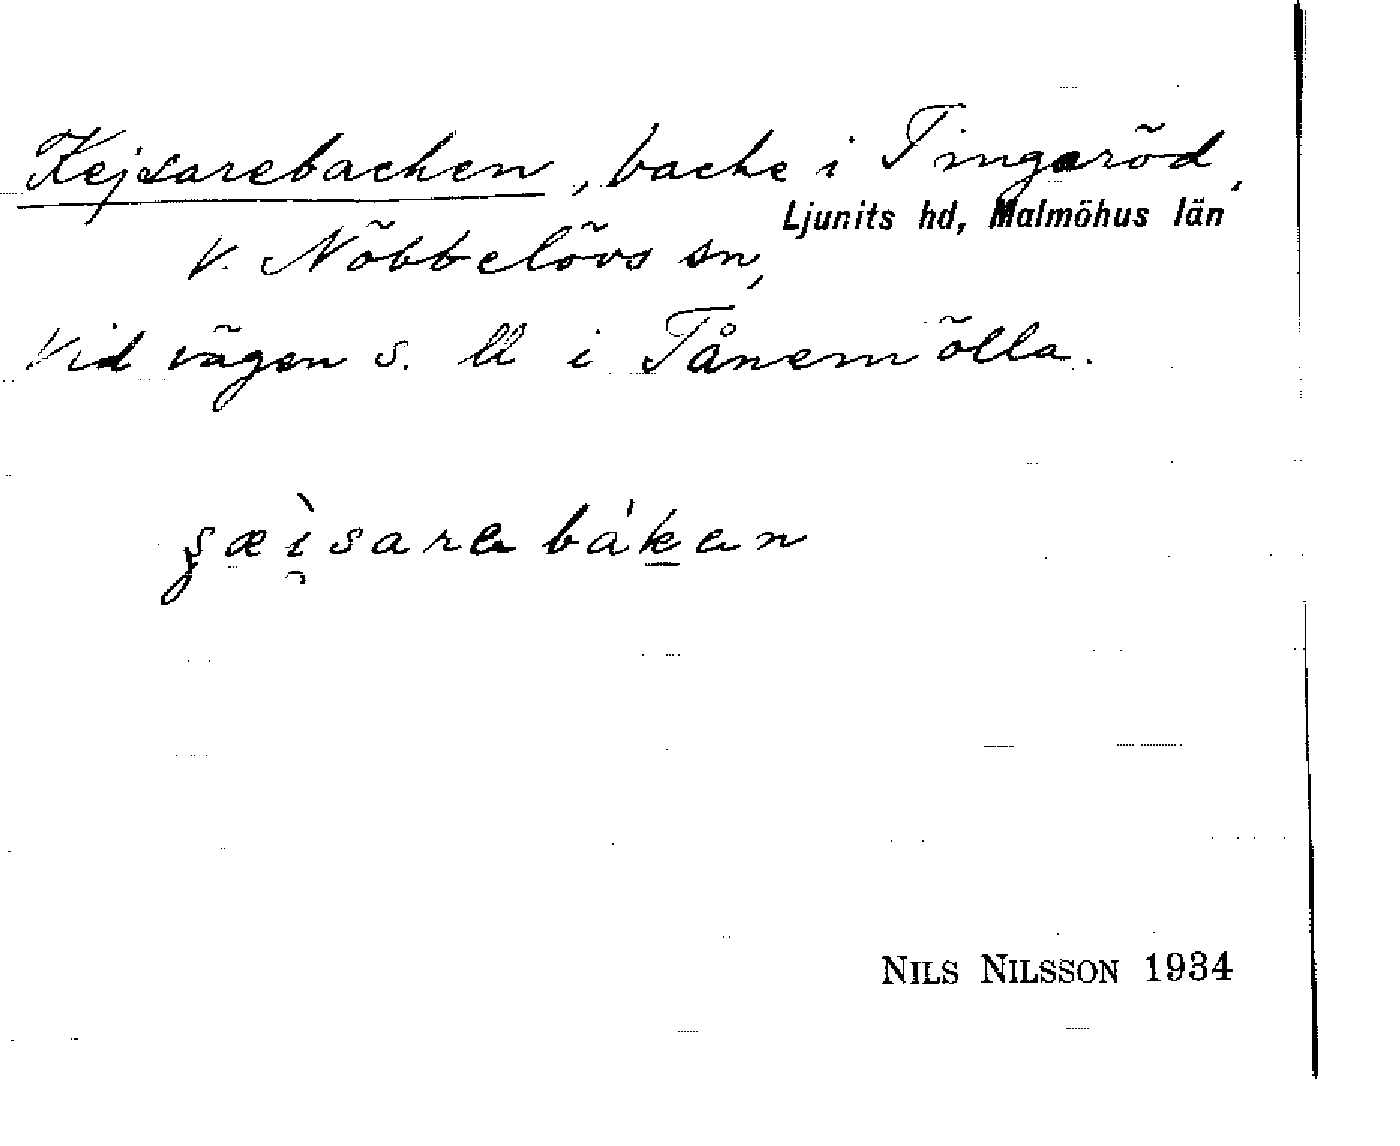 Kejsarebacken, backe i Tingaröd,
Ljunits hd, Malmöhus län
V. Nöbbelövs sn,
Vid vägen s. ll i Tånemölla.
NILS NILSSON 1934